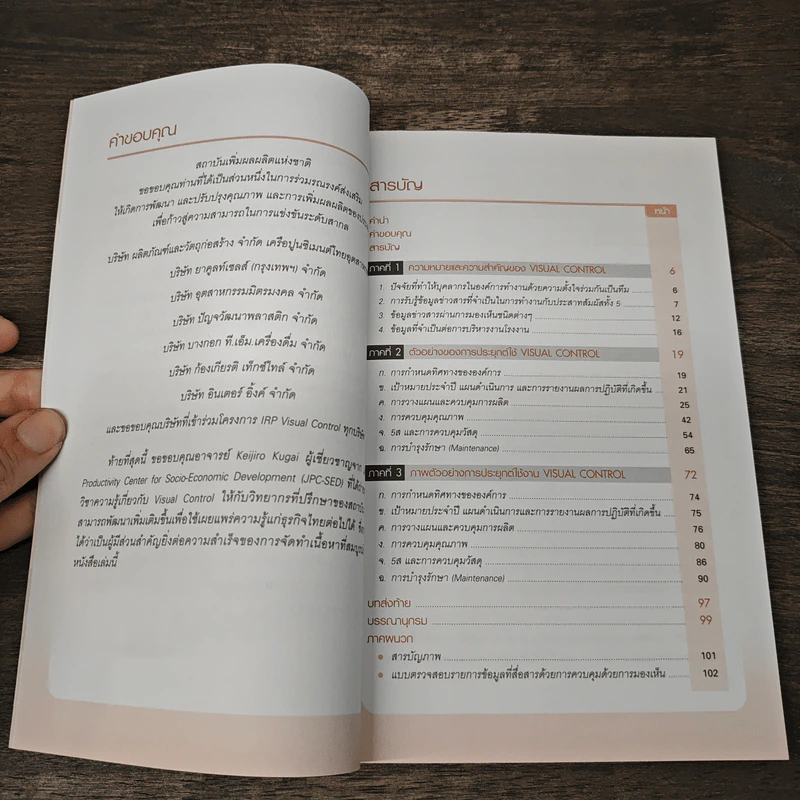 คำขอบคุณ
สถาบันเพิ่มผลผลิตแห่งชาติ
ขอขอบคุณท่านที่ได้เป็นส่วนหนึ่งในการร่วมรณรงค์ส่งเสริม
ให้เกิดการพัฒนา และปรับปรุงคุณภาพ และการเพิ่มผลผลิตของ
เพื่อก้าวสู่ความสามารถในการแข่งขันระดับสากล
บริษัท ผลิตภัณฑ์และวัตถุก่อสร้าง จำกัด เครือปูนซิเมนต์ไทยอุตสาหกรรม
บริษัท ยาคูลท์เซลส์ (กรุงเทพฯ) จำกัด
บริษัท อุตสาหกรรมมิตรมงคล จำกัด
บริษัท ปัญจวัฒนาพลาสติก จำกัด
บริษัท บางกอก ที.เอ็ม.เครื่องดื่ม จำกัด
บริษัท ก้องเกียรติ เท็กซ์ไทล์ จำกัด
บริษัท อินเตอร์ อิ้งค์ จำกัด
และขอขอบคุณบริษัทที่เข้าร่วมโครงการ IRP Visual Control ทุกบริษัท
ท้ายที่สุดนี้ ขอขอบคุณอาจารย์ Keijiro Kugai ผู้เชี่ยวชาญจาก
Productivity Center for Socio-Economic Development (JPC-SED) ที่ได้
วิชาความรู้เกี่ยวกับ Visual Control ให้กับวิทยากรที่ปรึกษาของสถาบัน
สามารถพัฒนาเพิ่มเติมขึ้นเพื่อใช้เผยแพร่ความรู้แก่ธุรกิจไทยต่อไปได้
ได้ว่าเป็นผู้มีส่วนสำคัญยิ่งต่อความสำเร็จของการจัดทำเนื้อหาที่สมบูรณ์
หนังสือเล่มนี้
สารบัญ
หน้า
คำนำ
คำขอบคุณ
สารบัญ
ภาคที่ 1 ความหมายและความสำคัญของ VISUAL CONTROL 6
1. ปัจจัยที่ทำให้บุคลากรในองค์การทำงานด้วยความตั้งใจร่วมกันเป็นทีม 6
2. การรับรู้ข้อมูลข่าวสารที่จำเป็นในการทำงานกับประสาทสัมผัสทั้ง 5 7
3. ข้อมูลข่าวสารผ่านการมองเห็นชนิดต่างๆ 12
4. ข้อมูลที่จำเป็นต่อการบริหารงานโรงงาน 16
ภาคที่ 2 ตัวอย่างของการประยุกต์ใช้ VISUAL CONTROL 19
ก. การกำหนดทิศทางขององค์การ 19
ข. เป้าหมายประจำปี แผนดำเนินการ และการรายงานผลการปฏิบัติที่เกิดขึ้น 21
ค. การวางแผนและควบคุมการผลิต 25
ง. การควบคุมคุณภาพ 42
จ. 5ส และการควบคุมวัสดุ 54
ฉ. การบำรุงรักษา (Maintenance) 65
ภาคที่ 3 ภาพตัวอย่างการประยุกต์ใช้งาน VISUAL CONTROL 72
ก. การกำหนดทิศทางขององค์การ 74
ข. เป้าหมายประจำปี แผนดำเนินการและการรายงานผลการปฏิบัติที่เกิดขึ้น 75
ค. การวางแผนและควบคุมการผลิต 76
ง. การควบคุมคุณภาพ 80
จ. 5ส และการควบคุมวัสดุ 86
ฉ. การบำรุงรักษา (Maintenance) 90
บทส่งท้าย 97
บรรณานุกรม 99
ภาคผนวก
• สารบัญภาพ 101
• แบบตรวจสอบรายการข้อมูลที่สื่อสารด้วยการควบคุมด้วยการมองเห็น 102